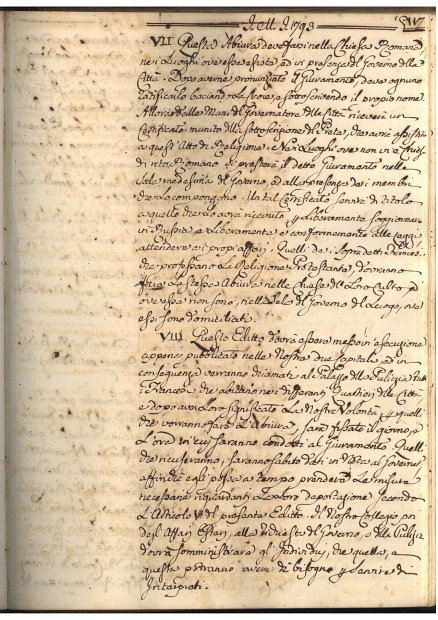 1793
117
VII Questa Abiura deve farsi nella Chiesa Romana
nei Luoghi ove essa esiste, ed in presenza del Governo della
Città. Dopo averne pronunziato il Giuramento dovrà ognuno
ratificarlo baciando la Croce, e sottoscrivendo il proprio nome.
Allora dalle Mani del Governatore della Città riceverà un
Certificato munito della sottoscrizione del Prete, che avrà assistito
a quest' Atto di Religione. Nei Luoghi ove non vi è Chiesa
di rito Romano si presterà il detto Giuramento nelle
Sale medesime del Governo, ed alla presenza dei membri
che lo compongono. Un tal Certificato servirà di titolo
a quello che lo avrà ricevuto per liberamente soggiornare
in Russia, e liberamente e conformemente alle Leggi
attendere ai proprj affari. Quelli de' sopradetti Francesi
che professano la Religione Protestante, dovranno
fare la stessa Abiura nelle Chiese del Loro Culto, e
ove esse non sono, nelle Sale del Governo del Luogo, ove
essi sono domiciliati.
VIII Questo Editto dovrà essere messo in esecuzione
appena pubblicato nelle Nostre due Capitali, ed in
conseguenza verranno chiamati al Palazzo della Polizia tutti
i Francesi che abitano nei differenti Quartieri della Città
e dopo aver loro significato le Nostre Volontà, per quelli
che vorranno fare l'Abiura, sarà fissato il giorno, e
l'ora in cui saranno condotti al Giuramento. Quelli
che ricuseranno, saranno subito dati in Nota al Governo
affinchè egli possa a tempo prendere le misure
necessarie riguardanti la loro deportazione secondo
l'Articolo V del presente Editto. Il Nostro Collegio per
degl' Affari Esteri, alla richiesta del Governo, e della Polizia
dovrà somministrare gl' Individui, che quella, e
questa potranno avere di bisogno per servire di
Interpreti.